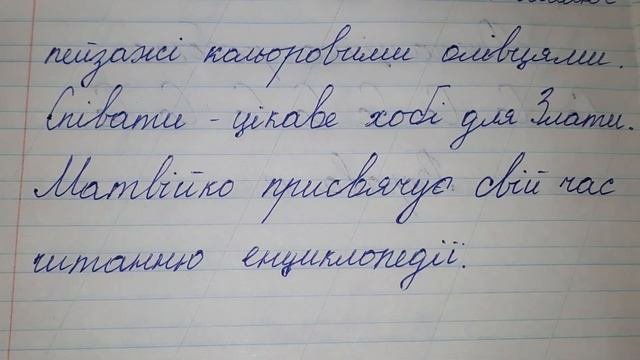 пейзажі кольоровими олівцями.
Співати - цікаве хобі для Злати.
Матвійко присвячує свій час
читанню енциклопедії.